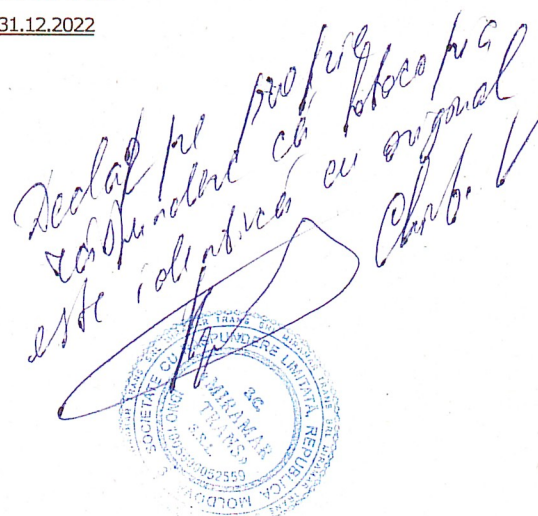 31.12.2022
Declar pe proprie
răspundere că fotocopia
este identică cu original
SOCIETATE CU RĂSPUNDERE LIMITATĂ
REPUBLICA MOLDOVA
S.C.
"MIRAMAR
TRANS"
S.R.L.